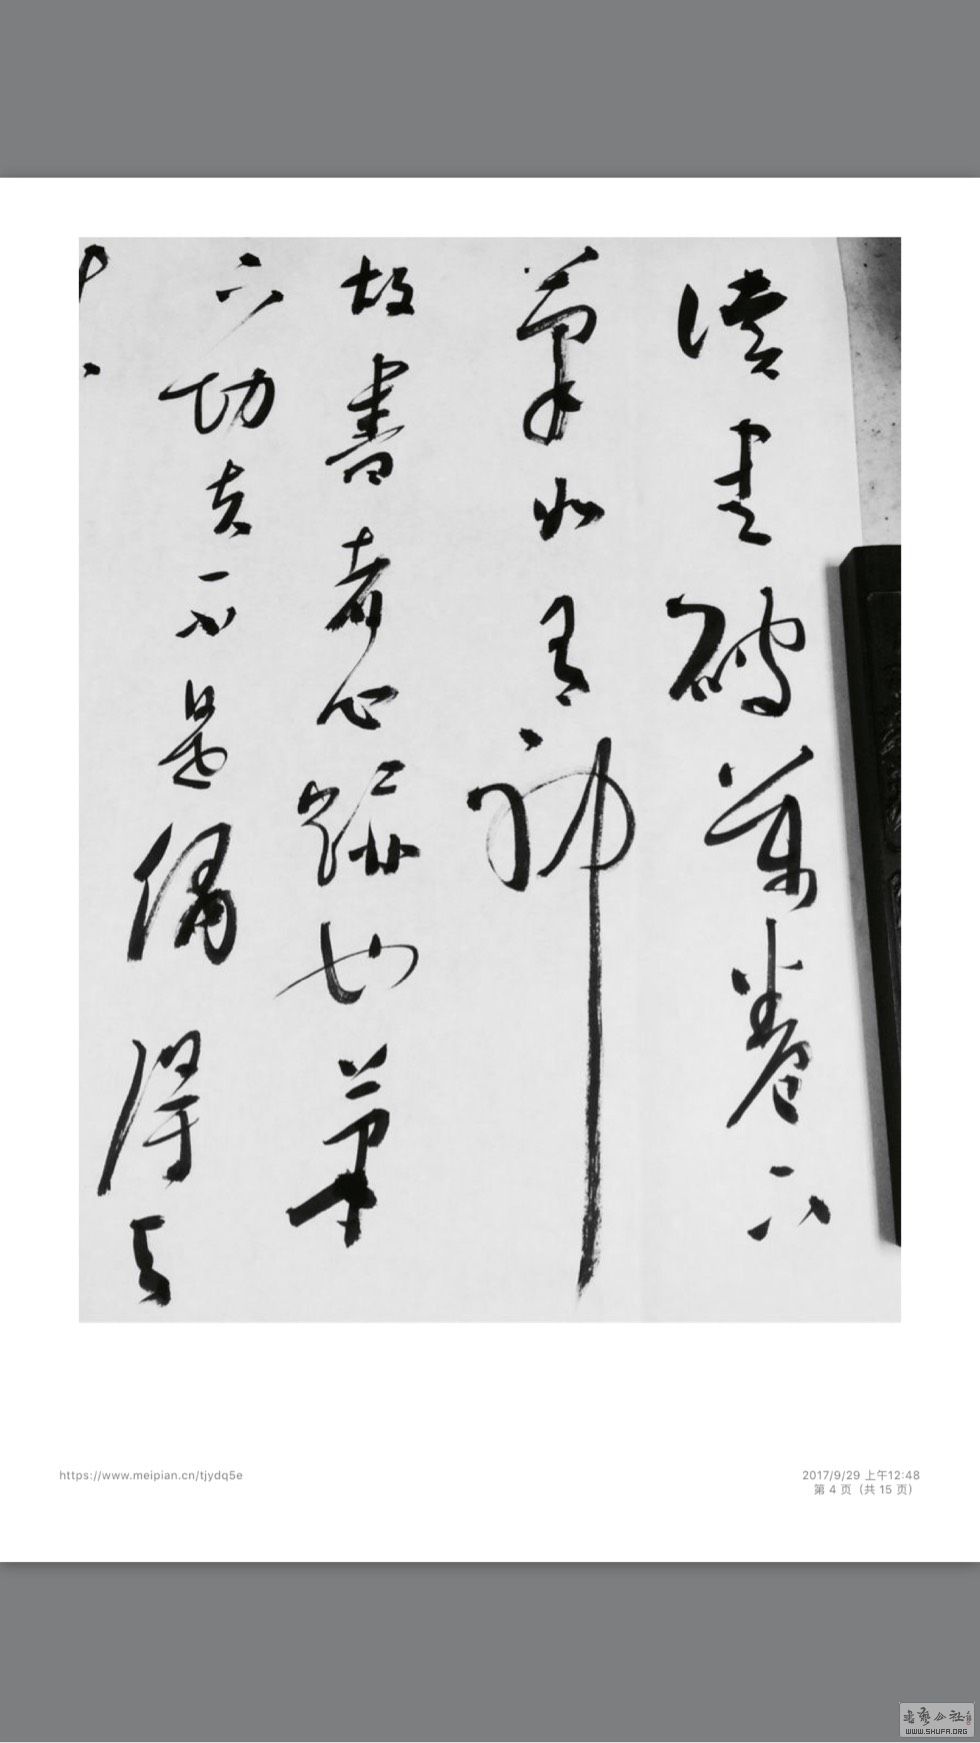 讀書破萬卷下
筆如有神
故書者心跡也筆
下功夫不是偶得之
https://www.meipian.cn/tjydq5e
2017/9/29 上午12:48
第 4 页（共 15 页）
書藝公社
WWW.SHUFA.ORG